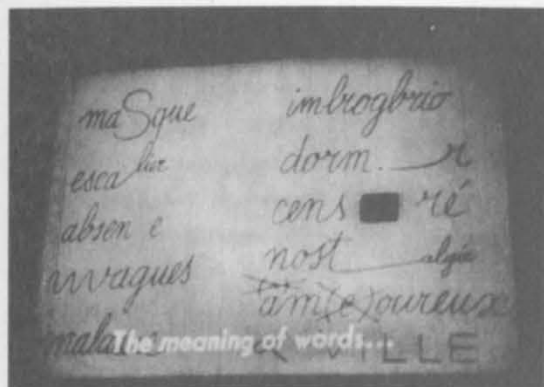 maSque
escalier
absen e
vvvagues
imbroglbrio
dorm. r
cens ré
nost algie
am(e)oureux
VILLE
The meaning of words...